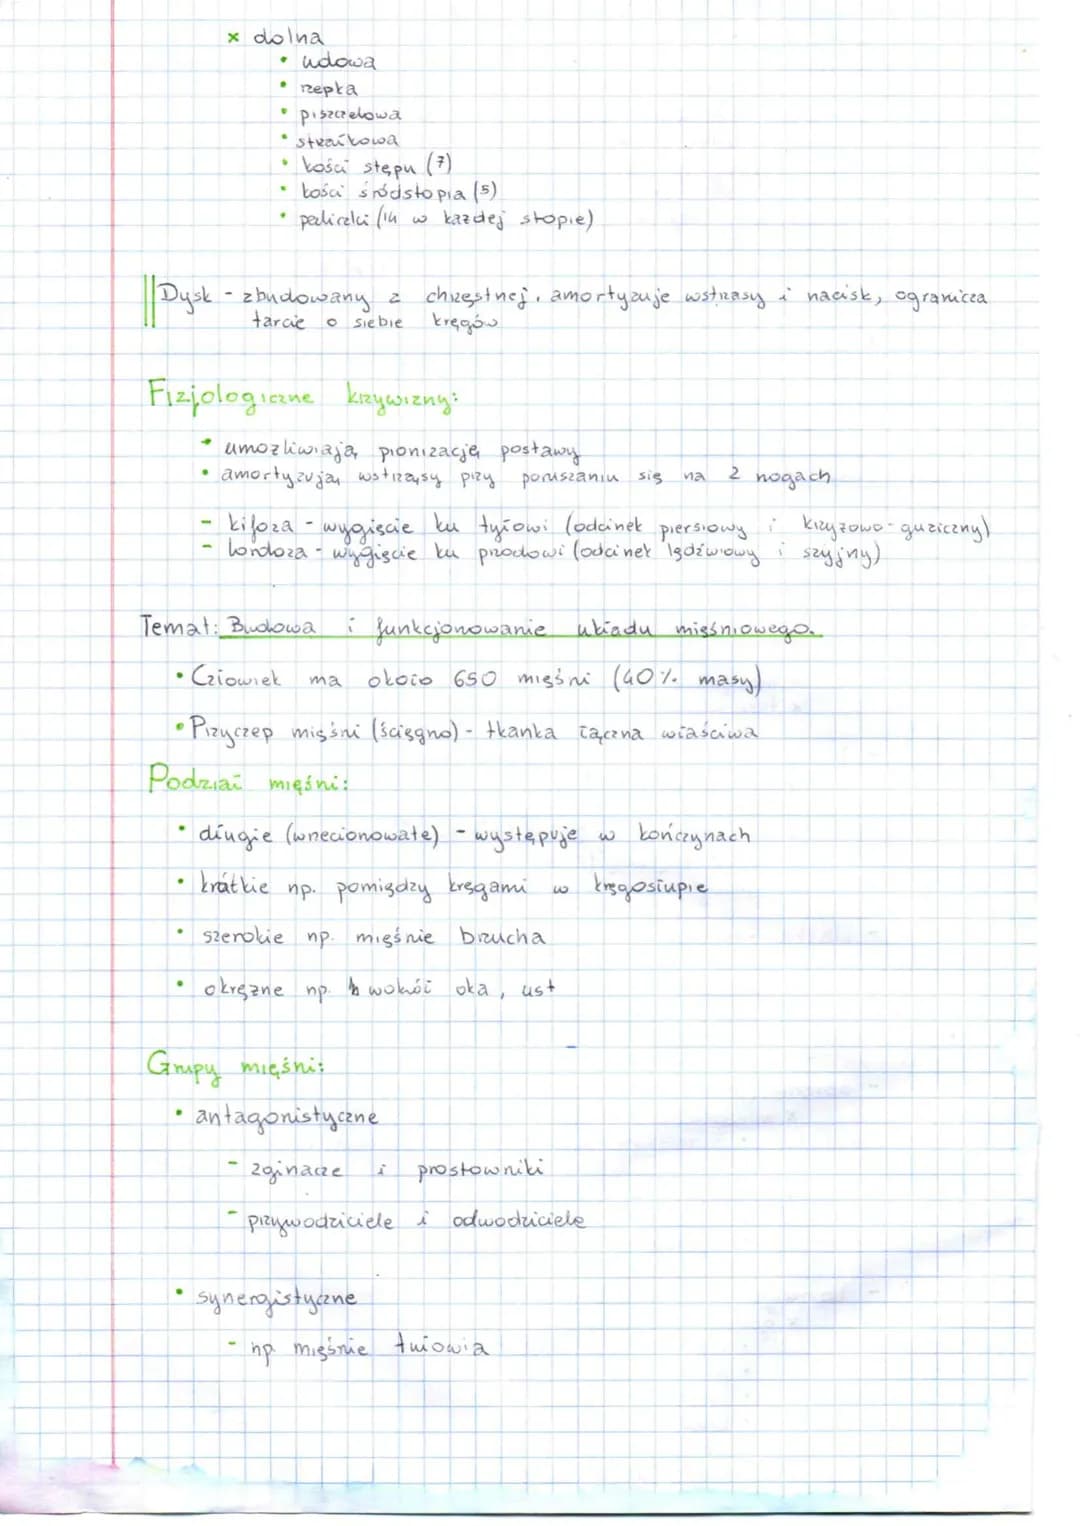 x dolna
• udowa
• rzepka
• piszczelowa
• strzałkowa
• kości stępu (7)
• kości śródstopia (5)
• paliczki (14 w każdej stopie)
Dysk - zbudowany z chrzęstnej, amortyzuje wstrząsy i nacisk, ogranicza
tarcie o siebie kręgów
Fizjologiczne krzywizny:
• umożliwiają pionizację postawy
• amortyzują wstrząsy przy poruszaniu się na 2 nogach
- kifoza - wygięcie ku tyłowi (odcinek piersiowy i krzyżowo-guziczny)
- lordoza - wygięcie ku przodowi (odcinek lędźwiowy i szyjny)
Temat: Budowa i funkcjonowanie układu mięśniowego.
• Człowiek ma około 650 mięśni (40% masy)
• Przyczep mięśni (ścięgno) - tkanka łączna właściwa
Podział mięśni:
• długie (wrzecionowate) - występuje w kończynach
• krótkie np. pomiędzy kręgami w kręgosłupie
• szerokie np. mięśnie brzucha
• okrężne np. wokół oka, ust
Grupy mięśni:
• antagonistyczne
- zginacze i prostowniki
- przywodziciele i odwodziciele
• synergistyczne
- np. mięśnie tułowia